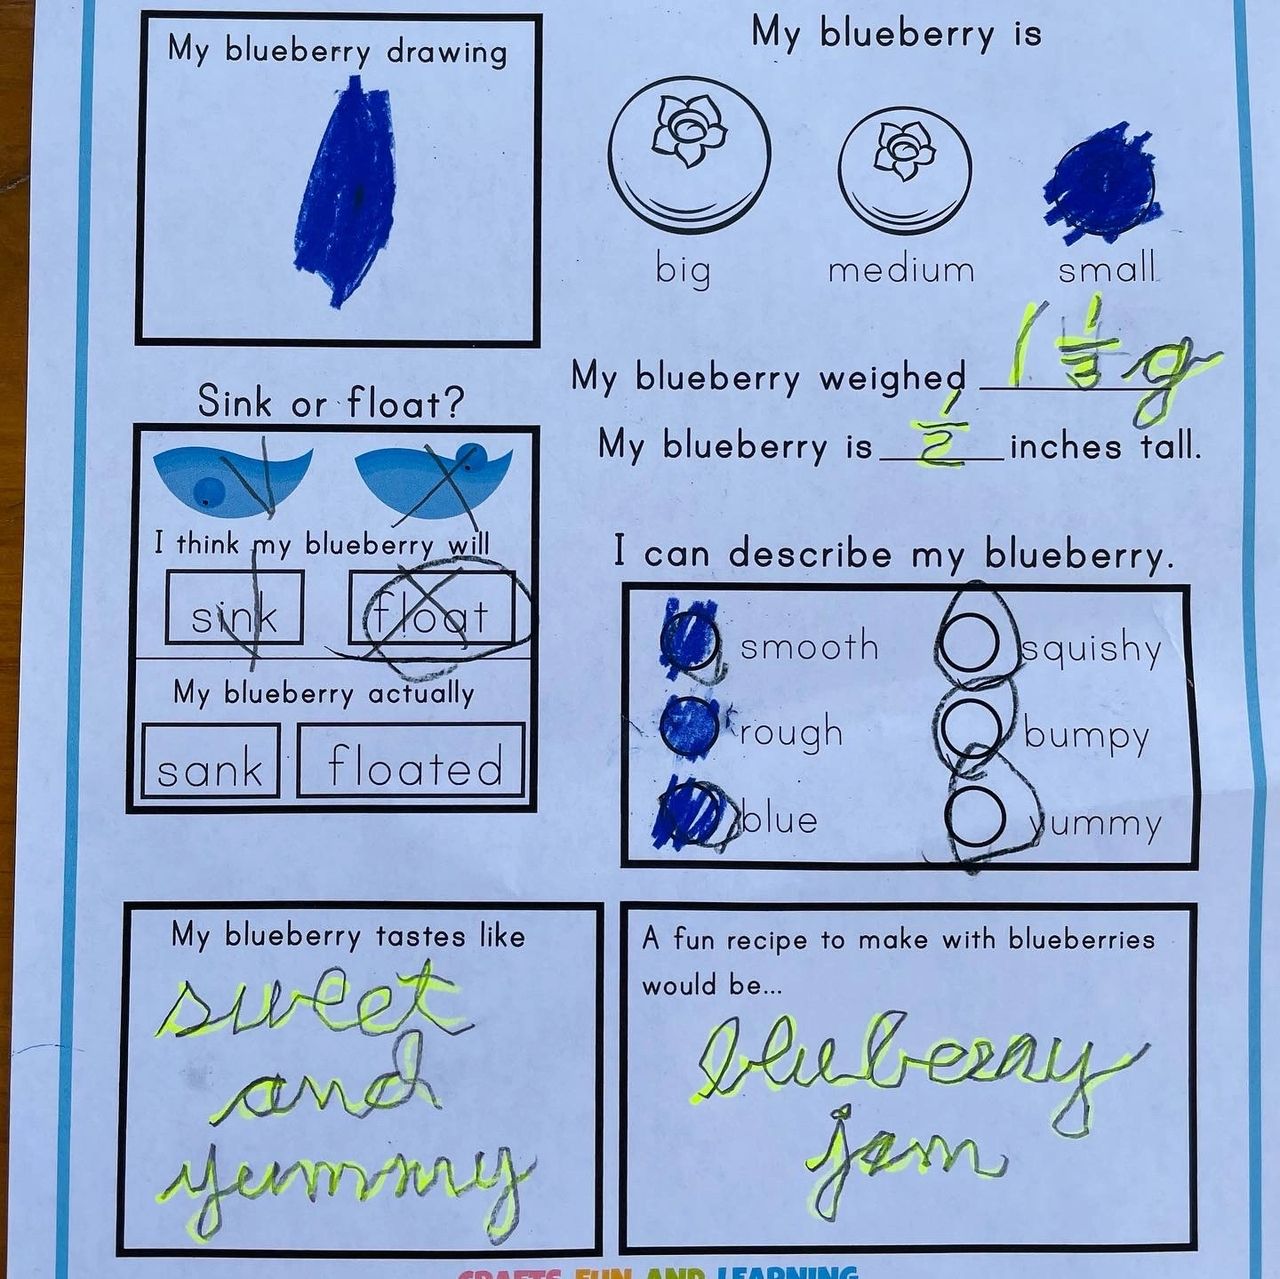 My blueberry drawing
My blueberry is
big medium small
My blueberry weighed 1 1/3 g
My blueberry is 1/2 inches tall.
Sink or float?
I think my blueberry will
sink float
My blueberry actually
sank floated
I can describe my blueberry.
smooth squishy
rough bumpy
blue yummy
My blueberry tastes like
sweet
and
yummy
A fun recipe to make with blueberries
would be...
blueberry
jam
CRAFTS, FUN AND LEARNING